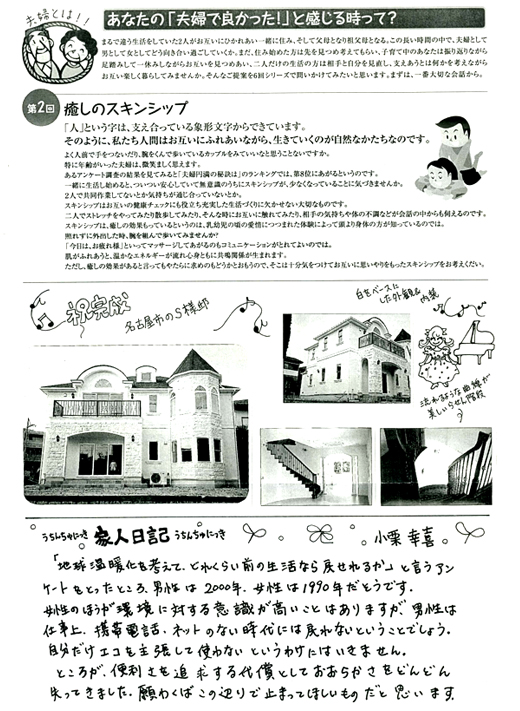 夫婦とは!!
あなたの「夫婦で良かった!」と感じる時って?
まるで違う生活をしていた2人がお互いにひかれあい一緒に住み、そして父母となり祖父母となる。この長い時間の中で、夫婦として
男として女としてどう向き合い過ごしていくか。まだ、住み始めた方は先を見つめ考えてもらい、子育て中のあなたは振り返りながら
足踏みして一休みしながらお互いを見つめあい、二人だけの生活の方は相手と自分を見直し、支えあうとは何かを考えながら
お互い楽しく暮らしてみませんか。そんなご提案を6回シリーズで問いかけてみたいと思います。まずは、一番大切な会話から。
第2回 癒しのスキンシップ
「人」という字は、支え合っている象形文字からできています。
そのように、私たち人間はお互いにふれあいながら、生きていくのが自然なかたちなのです。
よく人前で手をつないだり、腕をくんで歩いているカップルをみていいなと思うことないですか。
特に年齢がいった夫婦は、微笑ましく思えます。
あるアンケート調査の結果を見てみると「夫婦円満の秘訣は」のランキングでは、第8位にあがるというのです。
一緒に生活し始めると、ついつい安心していて無意識のうちにスキンシップが、少なくなっていることに気づきませんか。
2人で共同作業してないとか気持ちが通じ合っていないとか。
スキンシップはお互いの健康チェックにも役立ち充実した生活づくりに欠かせない大切なものです。
二人でストレッチをやってみたり散歩してみたり、そんな時にお互いに触れてみたり、相手の気持ちや体の不調などが会話の中からも伺えるのです。
スキンシップは、癒しの効果もっているというのは、乳幼児の頃の愛情につつまれた体験によって頭より身体の方が知っているのでは。
照れずに外出した時、腕を組んで歩いてみませんか?
「今日は、お疲れ様」といってマッサージしてあげるのもコミュニケーションがとれてよいのでは。
肌がふれあうと、温かなエネルギーが流れ心身ともに共鳴関係が生まれます。
ただし、癒し効果があると言ってもやたらに求めのもどうかとおもうので、そこは十分気をつけてお互いに思いやりをもったスキンシップをお考えください。
祝完成
名古屋市のS様邸
白をベースに
した外観&内装
流れるような曲線が
美しいらせん階段
うちんちゅにっき 家人日記 うちんちゅにっき 小栗幸喜
「地球温暖化を考えて、どれくらい前の生活なら戻せれるか」と言うアン
ケートをとったところ、男性は2000年、女性は1990年だとうです。
女性のほうが環境に対する意識が高いことはありますが、男性は
仕事上、携帯電話・ネットのない時代には戻れないということでしょう。
自分だけエコを主張して使わないというわけにはいきません。
ところが、便利さを追求する代償としておおらかさをどんどん
失ってきました。願わくばこの辺りで止まってほしいものだと思います。